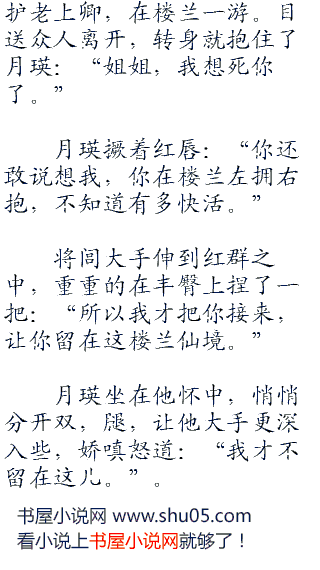 护老上卿，在楼兰一游。目
送众人离开，转身就抱住了
月瑛：“姐姐，我想死你
了。”
月瑛撅着红唇：“你还
敢说想我，你在楼兰左拥右
抱，不知道有多快活。”
将闾大手伸到红群之
中，重重的在丰臀上捏了一
把：“所以我才把你接来，
让你留在这楼兰仙境。”
月瑛坐在他怀中，悄悄
分开双，腿，让他大手更深
入些，娇嗔怒道：“我才不
留在这儿。”。
书屋小说网 www.shu05.com
看小说上书屋小说网就够了！